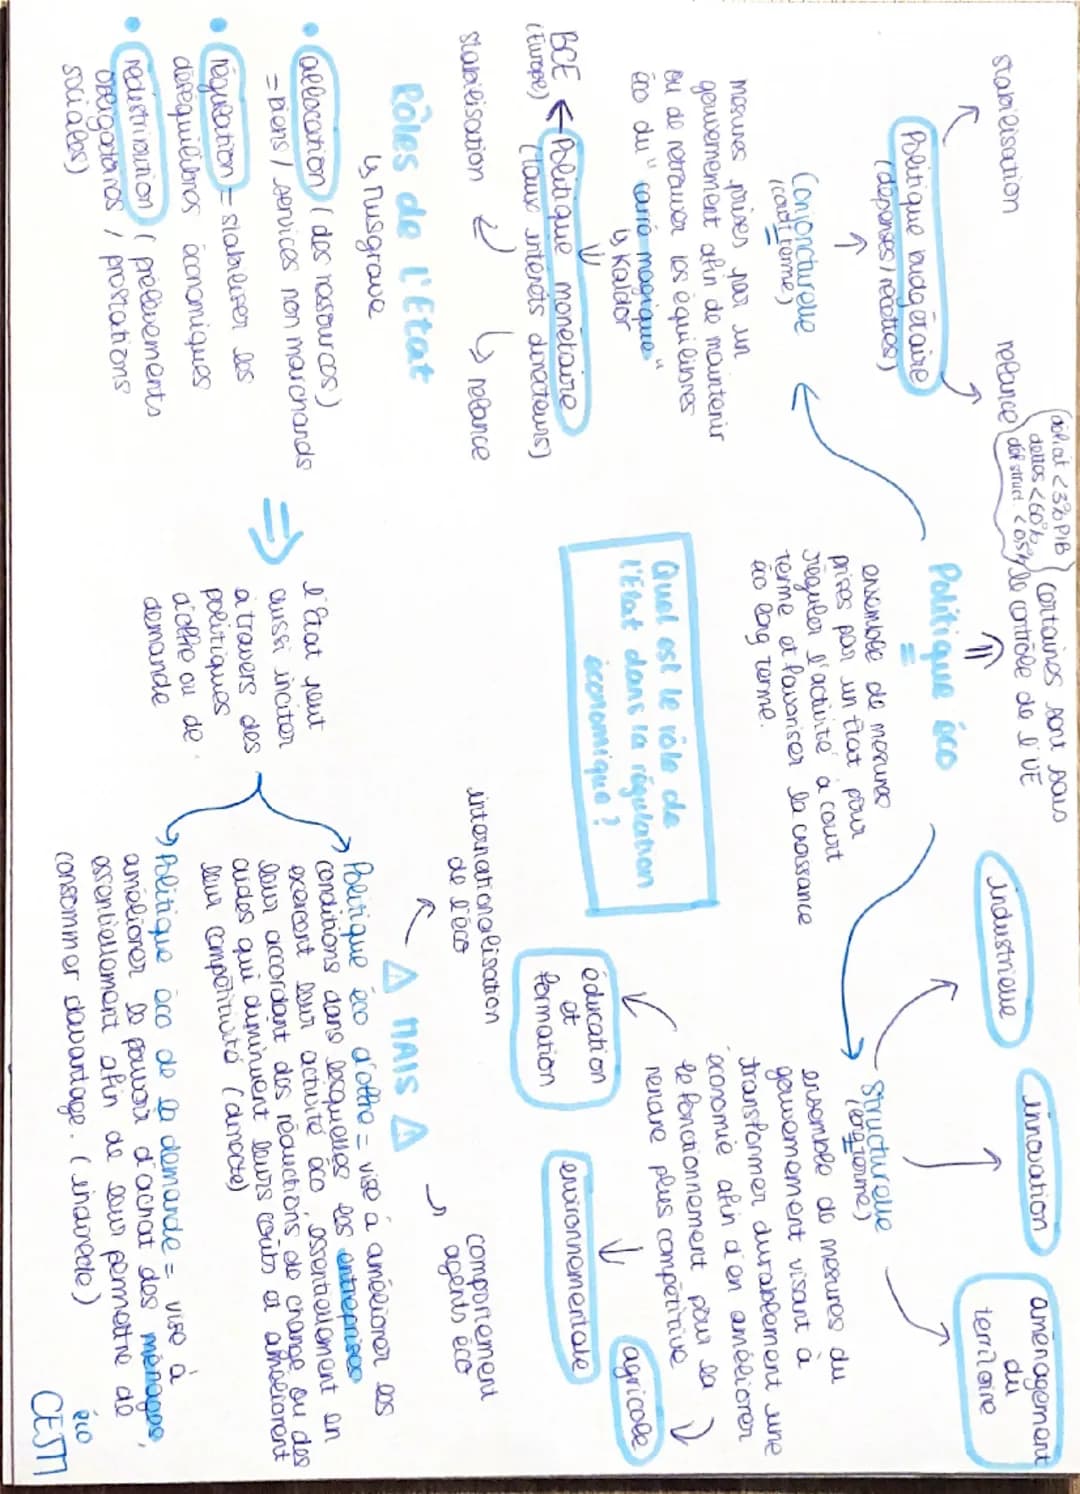 déficit <3% PIB
dettes <60%
déf struct. <0,5%
certaines sont sous
le contrôle de l'UE
stabilisation
relance
Politique budgétaire
(dépenses/recettes)
Conjoncturelle
(court terme)
mesures prises par un
gouvernement afin de maintenir
ou de retrouver les équilibres
éco du "carré magique"
↳ Kaldor
BCE ← Politique monétaire
(Europe)
(taux intérêts directeurs)
stabilisation
relance
Politique éco
=
ensemble de mesures
prises par un Etat pour
réguler l'activité à court
terme et favoriser la croissance
éco long terme.
industrielle
innovation
aménagement
du
territoire
Structurelle
(long terme)
ensemble de mesures du
gouvernement visant à
transformer durablement une
économie afin d'en améliorer
le fonctionnement pour la
rendre plus compétitive
éducation
et
formation
environnementale
agricole
Quel est le rôle de
l'Etat dans la régulation
économique ?
Rôles de l'Etat
↳ Musgrave
• allocation (des ressources)
= biens / services non marchands
• régulation = stabiliser les
déséquilibres économiques
• redistribution (prélèvements
obligatoires / prestations
sociales)
⇒
l'Etat peut
aussi inciter
à travers des
politiques
d'offre ou de
demande
⚠ MAIS ⚠
internationalisation
de l'éco
comportement
agents éco
Politique éco d'offre = vise à améliorer les
conditions dans lesquelles les entreprises
exercent leur activité éco, essentiellement en
leur accordant des réductions de charge ou des
aides qui diminuent leurs coûts et améliorent
leur compétitivité (directe)
Politique éco de la demande = vise à
améliorer le pouvoir d'achat des ménages,
essentiellement afin de leur permettre de
consommer davantage. (indirecte)
éco
CESTI